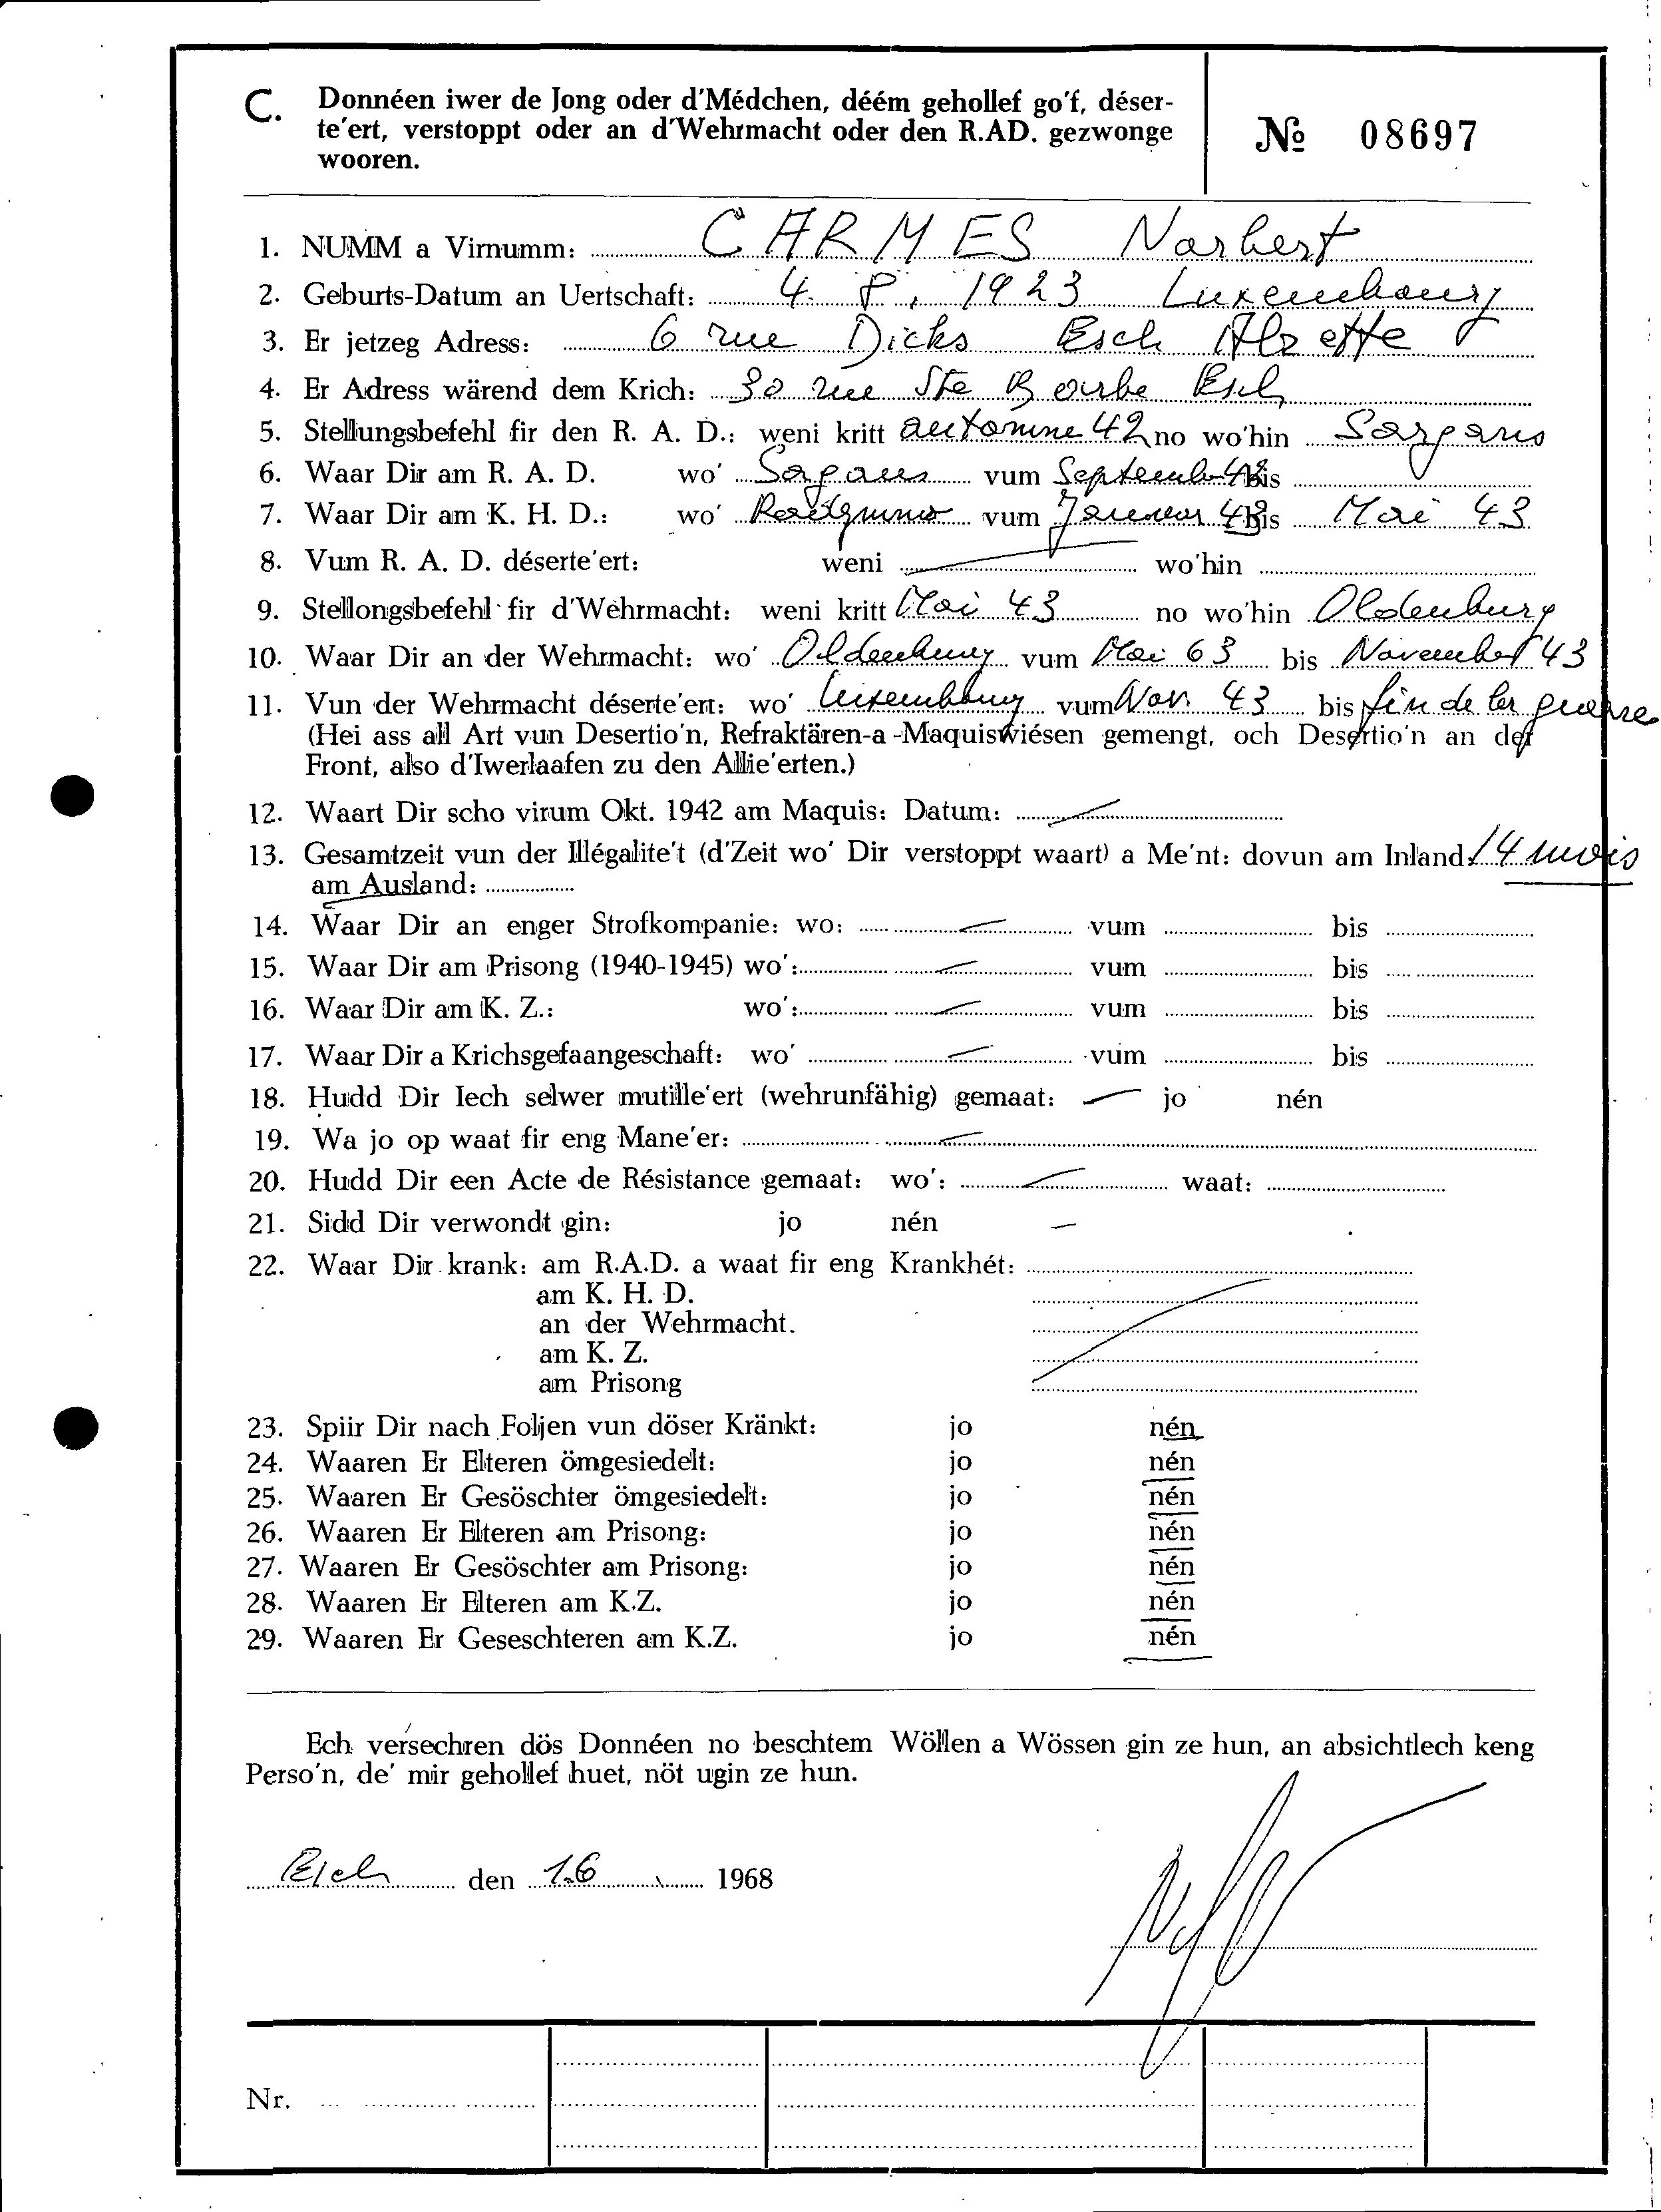 C. Donnéen iwer de Jong oder d'Médchen, déém gehollef go'f, déser-
te'ert, verstoppt oder an d'Wehrmacht oder den R.AD. gezwonge
wooren.
№ 08697
1. NUMM a Virnumm: CARMES Norbert
2. Geburts-Datum an Uertschaft: 4. 8. 1923 Luxembourg
3. Er jetzeg Adress: 6 rue Dicks Esch Alzette
4. Er Adress wärend dem Krich: 30 rue Ste Barbe Esch
5. Stellungsbefehl fir den R. A. D.: weni kritt automne 42 no wo'hin
6. Waar Dir am R. A. D. wo' vum Septemb. 42 bis
7. Waar Dir am K. H. D.: wo' vum Janvier 43 bis Mai 43
8. Vum R. A. D. déserte'ert: weni wo'hin
9. Stellongsbefehl fir d'Wehrmacht: weni kritt Mai 43 no wo'hin Oldenburg
10. Waar Dir an der Wehrmacht: wo' Oldenburg vum Mai 63 bis November 43
11. Vun der Wehrmacht déserte'ert: wo' Luxembourg vum Nov. 43 bis fin de la guerre
(Hei ass all Art vun Desertio'n, Refraktären-a -Maquiswiésen gemengt, och Desertio'n an der
Front, also d'Iwerlaafen zu den Allie'erten.)
12. Waart Dir scho virum Okt. 1942 am Maquis: Datum:
13. Gesamtzeit vun der Illégalite't (d'Zeit wo' Dir verstoppt waart) a Me'nt: dovun am Inland: 14 mois
am Ausland:
14. Waar Dir an enger Strofkompanie: wo: vum bis
15. Waar Dir am Prisong (1940-1945) wo': vum bis
16. Waar Dir am K. Z.: wo': vum bis
17. Waar Dir a Krichsgefaangeschaft: wo' vum bis
18. Hudd Dir Iech selwer mutille'ert (wehrunfähig) gemaat: jo nén
19. Wa jo op waat fir eng Mane'er:
20. Hudd Dir een Acte de Résistance gemaat: wo': waat:
21. Sidd Dir verwondt gin: jo nén
22. Waar Dir krank: am R.A.D. a waat fir eng Krankhét:
am K. H. D.
an der Wehrmacht.
am K. Z.
am Prisong
23. Spiir Dir nach Foljen vun döser Kränkt: jo nén
24. Waaren Er Elteren ömgesiedelt: jo nén
25. Waaren Er Gesöschter ömgesiedelt: jo nén
26. Waaren Er Elteren am Prisong: jo nén
27. Waaren Er Gesöschter am Prisong: jo nén
28. Waaren Er Elteren am K.Z. jo nén
29. Waaren Er Geseschteren am K.Z. jo nén
Ech versechren dös Donnéen no beschtem Wöllen a Wössen gin ze hun, an absichtlech keng
Perso'n, de' mir gehollef huet, nöt ugin ze hun.
Esch den 1.6 1968
Nr.